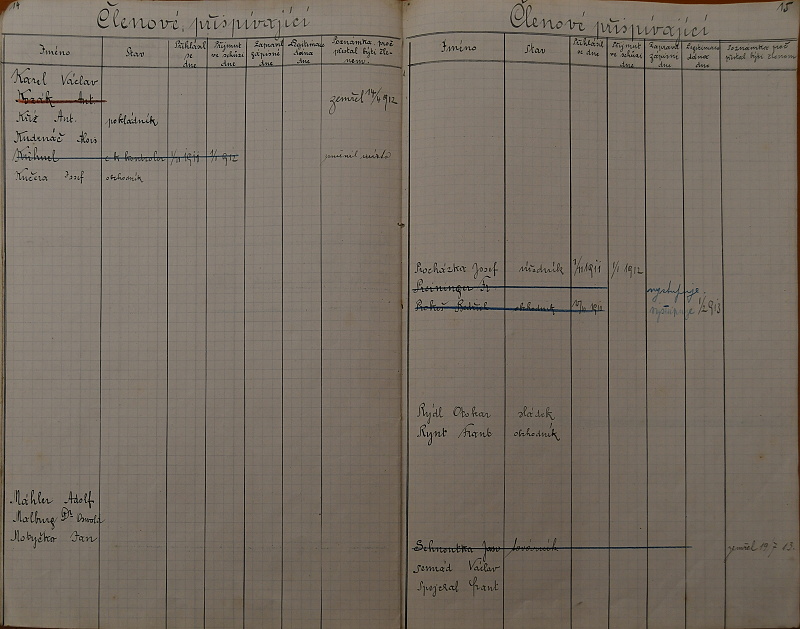 14
Členové přispívající
Jméno Stav Přihlásil se dne Přijmut ve schůzi dne Zapravil zápisné dne Legitimaci dána dne Poznámka proč přestal býti členem.
Karel Václav
Kozák Ant. zemřel 14/4 1912
Kříž Ant. pokladník
Kudrnáč Alois
Kühnel c k kontrolor 1/11 1911 1/1 1912
Kučera Josef obchodník
Mahler Adolf
Malburg Dr. Osvald
Motyčko Jan
15
Členové přispívající
Jméno Stav Přihlásil se dne Přijmut ve schůzi dne Zapravil zápisné dne Legitimaci dána dne Poznámka proč přestal býti členem
Procházka Josef úředník 1/11 1911 1/1 1912
Preininger Fr vystupuje.
Prokeš Bedřich obchodník 1911 vystupuje 1/2 913
Rýdl Otokar sládek
Rynt Frant obchodník
Schnoutka Jan továrník zemřel 19 7 13.
Semrád Václav
Spejzal Frant